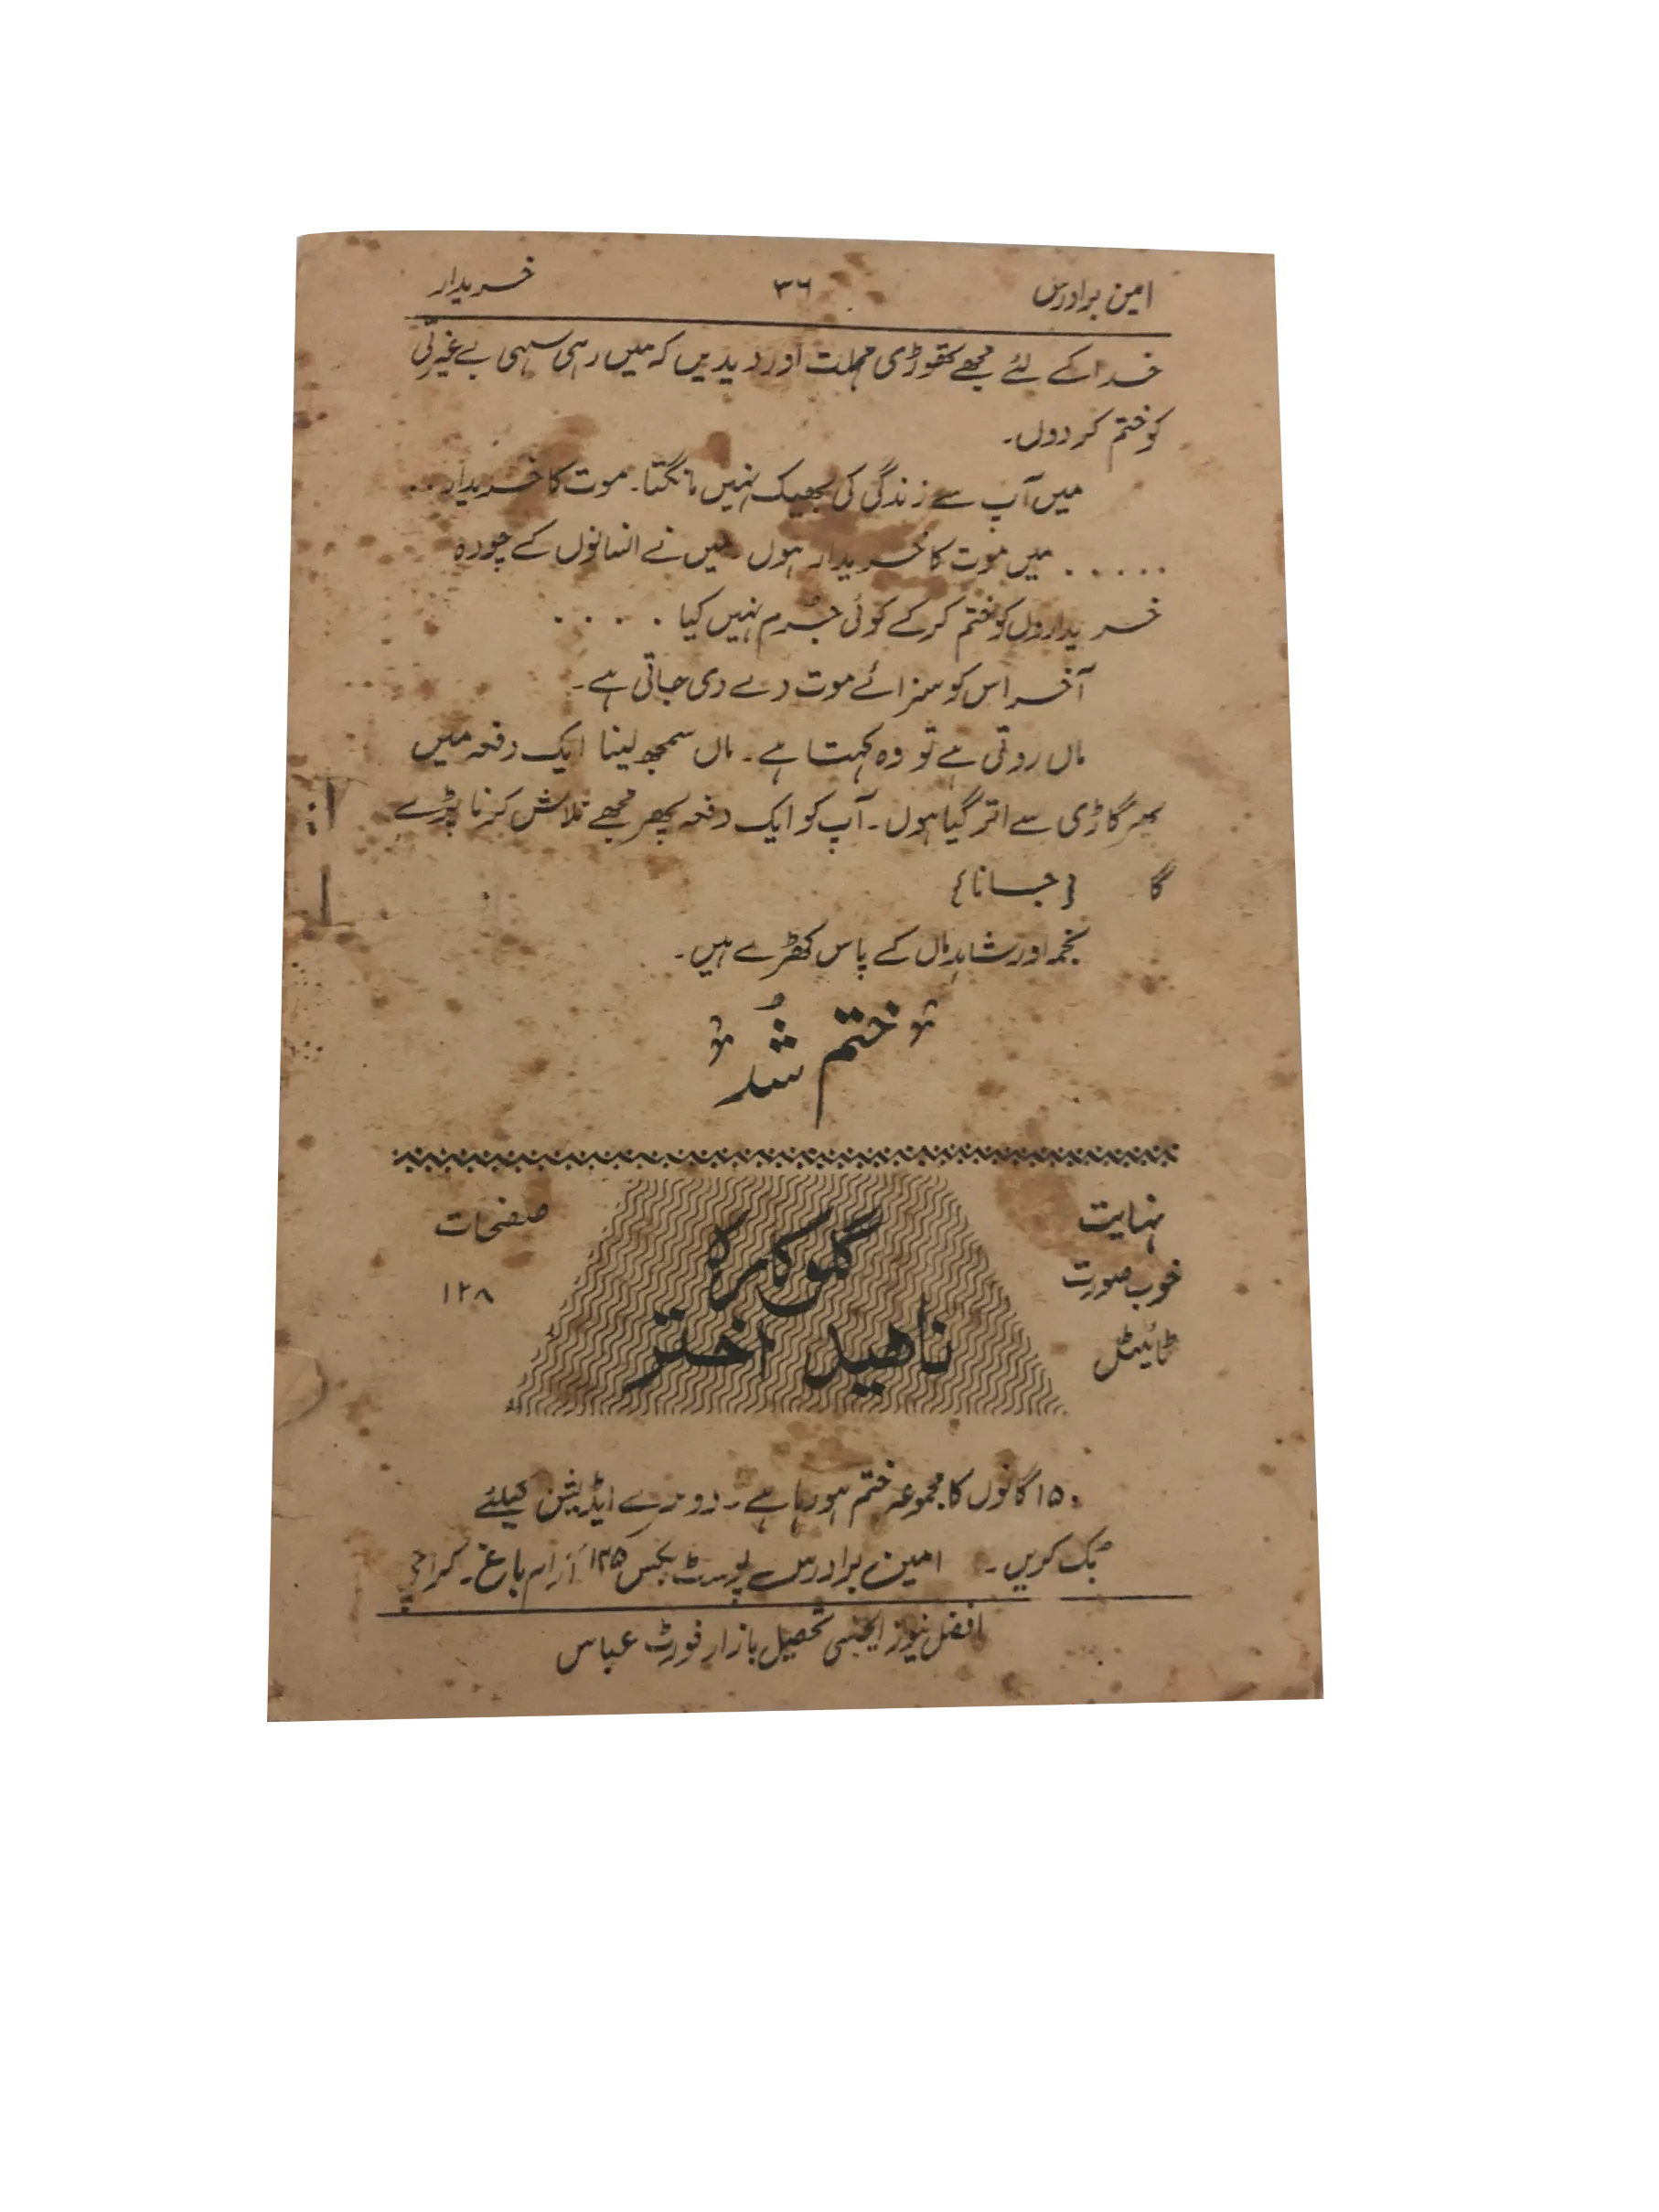 امین برادرس ۳۶ خریدار
خدا کے لئے مجھے تھوڑی مہلت اور دیدیں کہ میں رہی سہی بے غیرتی
کو ختم کر دوں۔
میں آپ سے زندگی کی بھیک نہیں مانگتا۔ موت کا خریدار . .
. . . . . میں موت کا خریدار ہوں میں نے انسانوں کے چورہ
خریداروں کو ختم کر کے کوئی جُرم نہیں کیا . . . .
آخر اس کو سزائے موت دے دی جاتی ہے۔
ماں روتی ہے تو وہ کہتا ہے۔ ماں سمجھ لینا ایک دفعہ میں
پھر گاڑی سے اتر گیا ہوں۔ آپ کو ایک دفعہ پھر مجھے تلاش کرنا پڑے
گا {جانا}
نجمہ اور شاہد ماں کے پاس کھڑے ہیں۔
ختم شُد
نہایت
خوب صورت
ٹائیٹل
گلوکارہ
ناھید اختر
صفحات
۱۲۸
۱۵۰ گانوں کا مجموعہ ختم ہو رہا ہے۔ دوسرے ایڈیشن کیلئے
بک کریں۔ امین برادرس پوسٹ بکس ۱۲۵ آرام باغ۔ کراچی
افضل نیوز ایجنسی تحصیل بازار فورٹ عباس